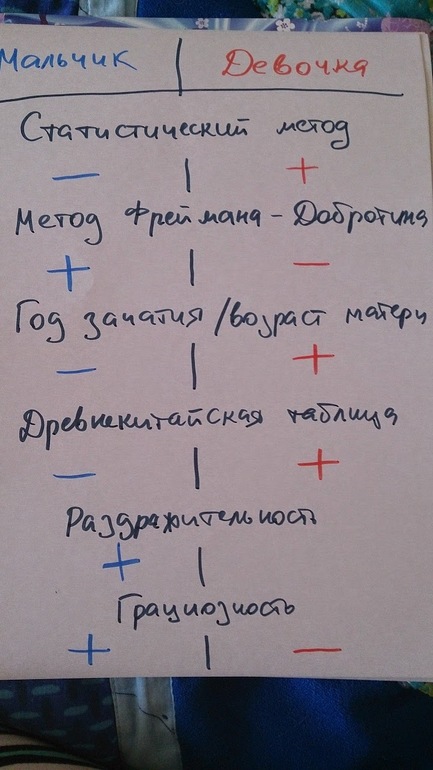 Мальчик | Девочка
Статистический метод
— | +
Метод Фреймана - Добротина
+ | —
Год зачатия / возраст матери
— | +
Древнекитайская таблица
— | +
Раздражительность
+ |
Грациозность
+ | —